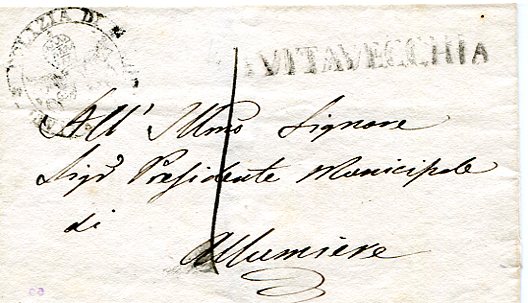 AZIA DI
VITAVECCHIA
All' Illmo Signore
Sigr Presidente Municipale
di
Allumiere